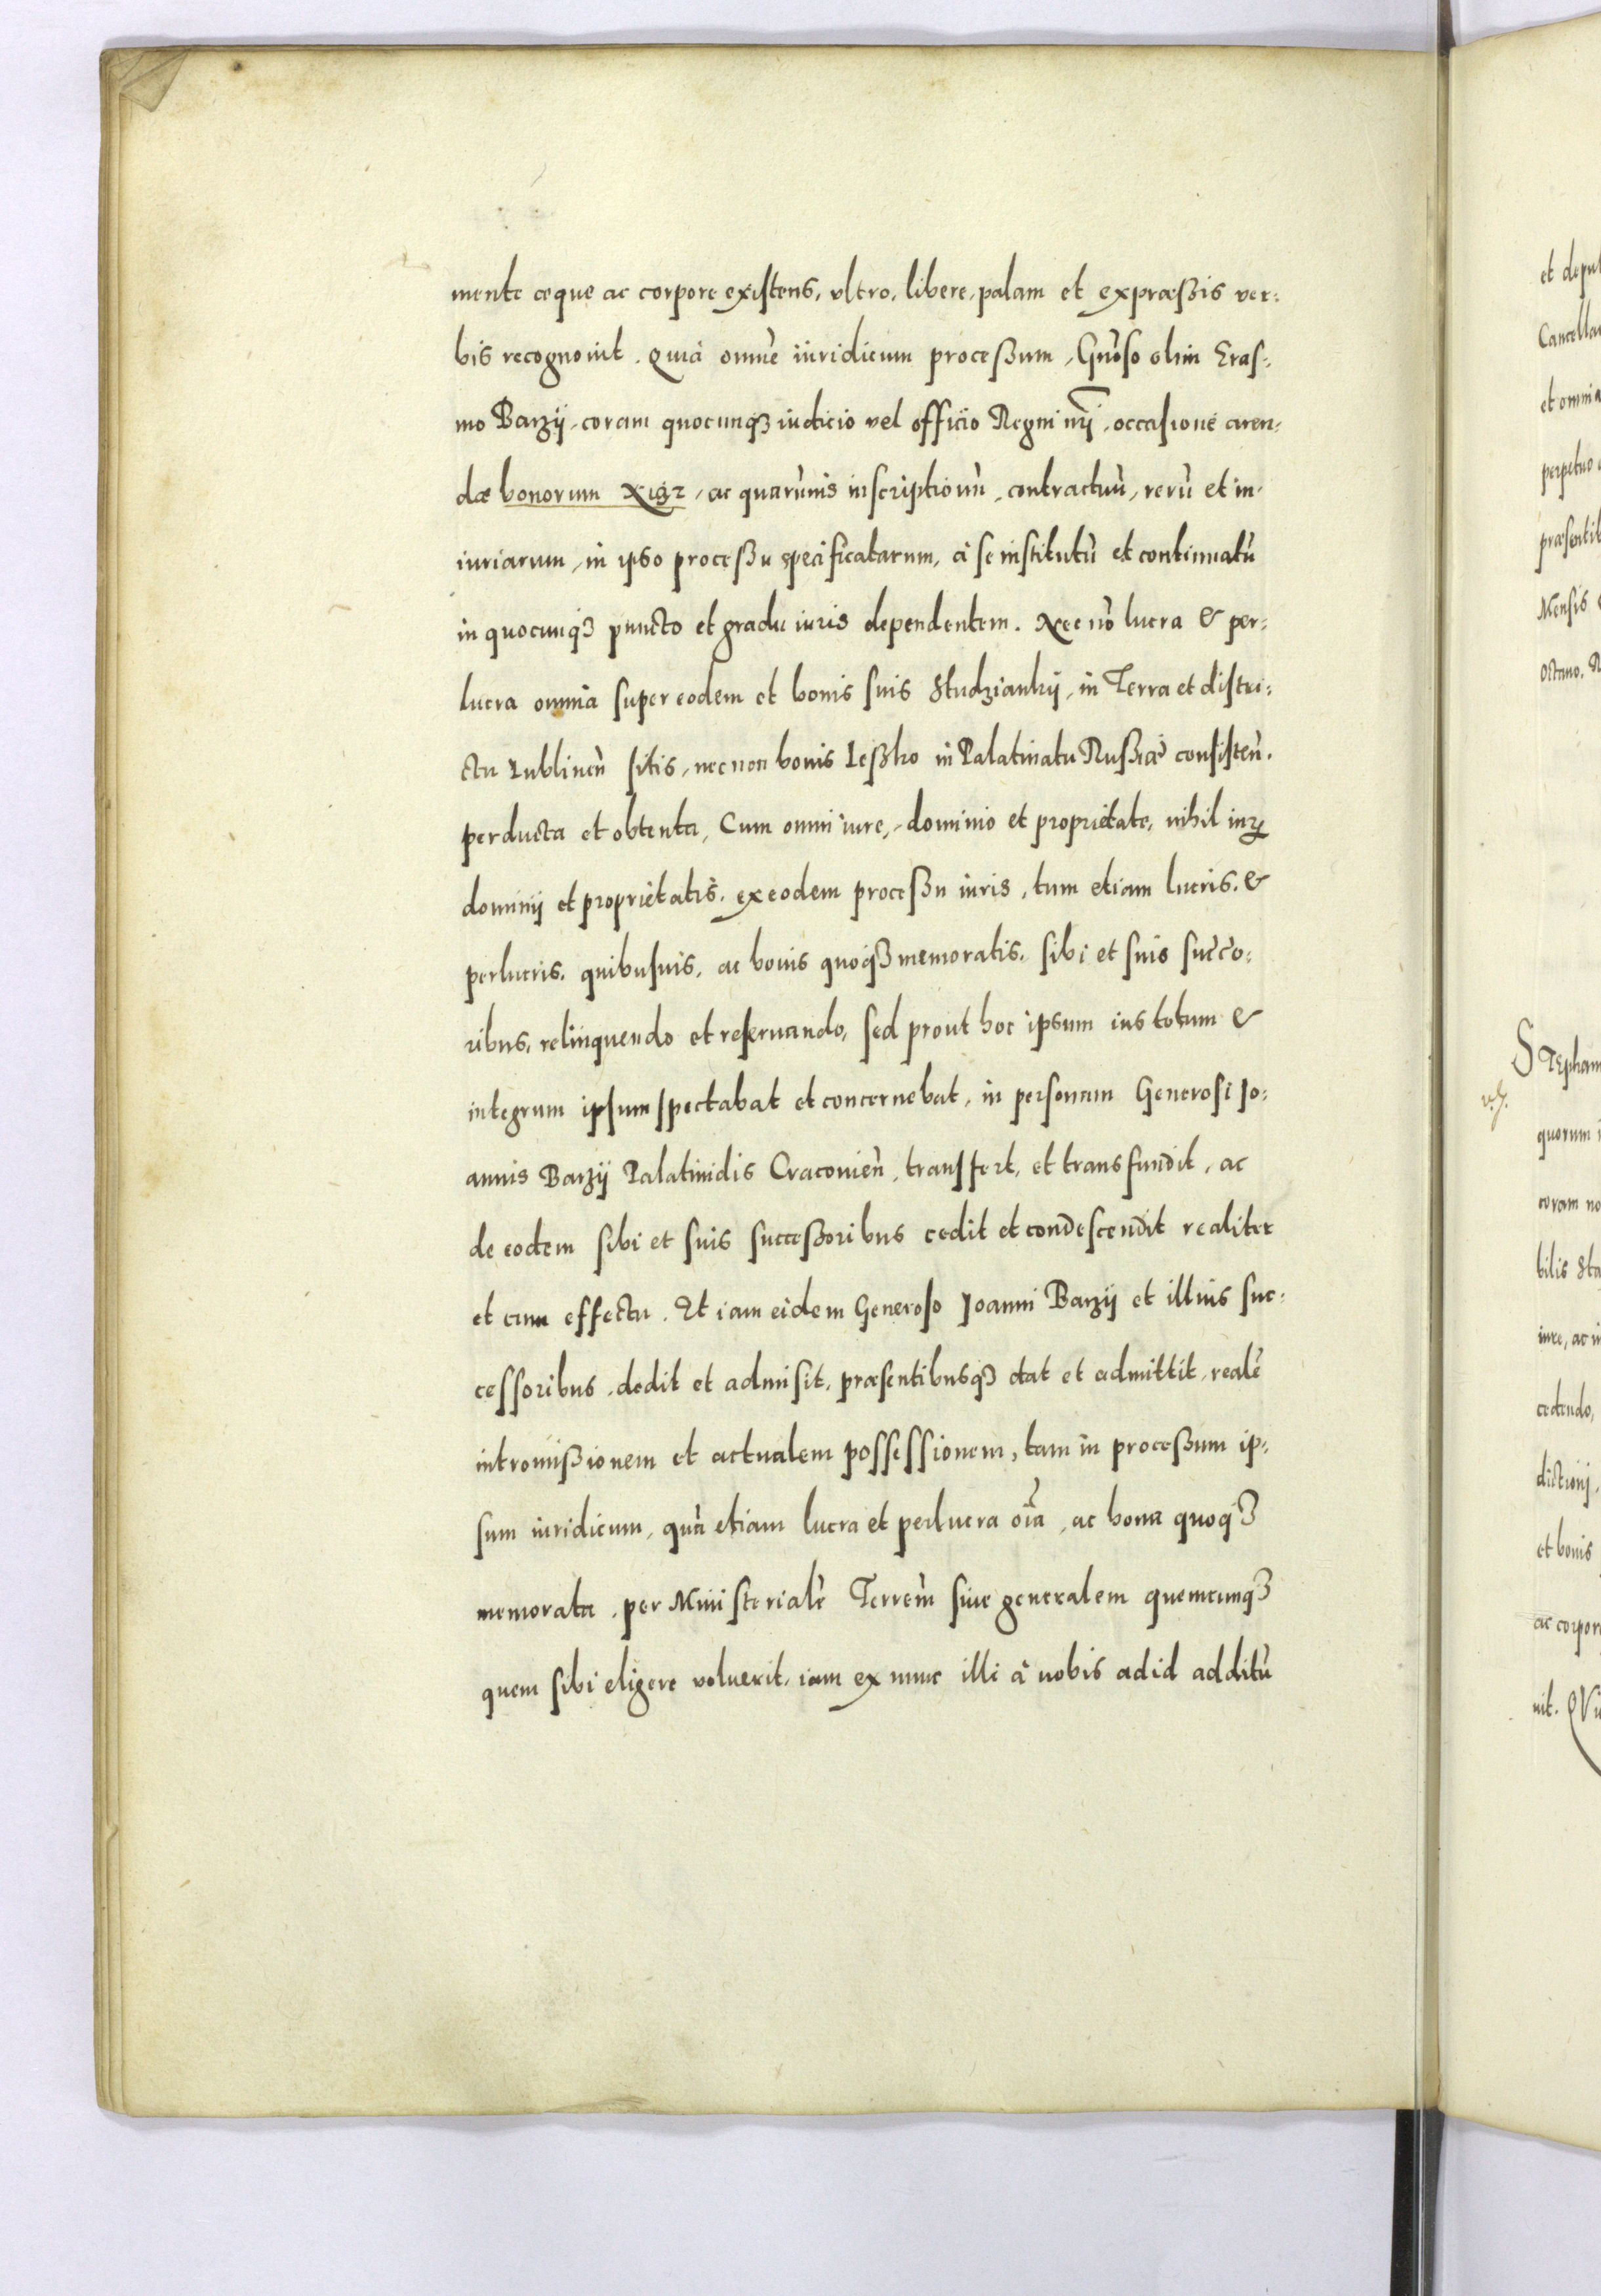 mente æque ac corpore existens, ultro, libere, palam et expræssis ver:
bis recognovit. Quia omnē iuridicum processum, Gnōso olim Eras:
mo Barzÿ, coram quocunqȝ iudicio vel officio Regni nr̄i, occasione aren:
dæ bonorum, ac quarūvis inscriptionū, contractuū, rerū et in:
iuriarum, in ipso processu specificatarum, à se institutū et continuatū
in quocunqȝ puncto et gradu iuris dependentem. Nec nō lucra & per:
lucra omnia super eodem et bonis suis Studziankÿ, in Terra et distri:
ctu Lublinen̄ sitis, nec non bonis Leszko in Palatinatu Russiæ consisten̄.
perducta et obtenta, Cum omni iure, dominio et proprietate, nihil iurꝭ
dominÿ et proprietatis, ex eodem processu iuris, tum etiam lucris, &
perlucris, quibusvis, ac bonis quoqȝ memoratis, sibi et suis succō:
ribus, relinquendo et reservando, sed prout hoc ipsum ius totum &
integrum ipsum spectabat et concernebat, in personam Generosi Jo:
annis Barzÿ Palatinidis Cracovien̄, transfert, et transfundit, ac
de eodem sibi et suis successoribus cedit et condescendit realiter
et cum effectu. Et iam eidem Generoso Joanni Barzÿ et illius suc:
cessoribus, dedit et admisit, præsentibusqȝ dat et admittit, realē
intromissionem et actualem possessionem, tam in processum ip:
sum iuridicum, quā etiam lucra et perlucra oīa, ac bona quoqȝ
memorata, per Ministerialē Terrēm sive generalem quemcunqȝ
quem sibi eligere voluerit, iam ex nunc illi à nobis ad id additū
et depu
Cancella
et omnia
perpetuo
præsentib
Mensis
Octavo. R
Stephan
quorum i
coram no
bilis Sta
iure, ac i
cedendo,
dictioni,
et bonis
ac corpor
vit. QVi